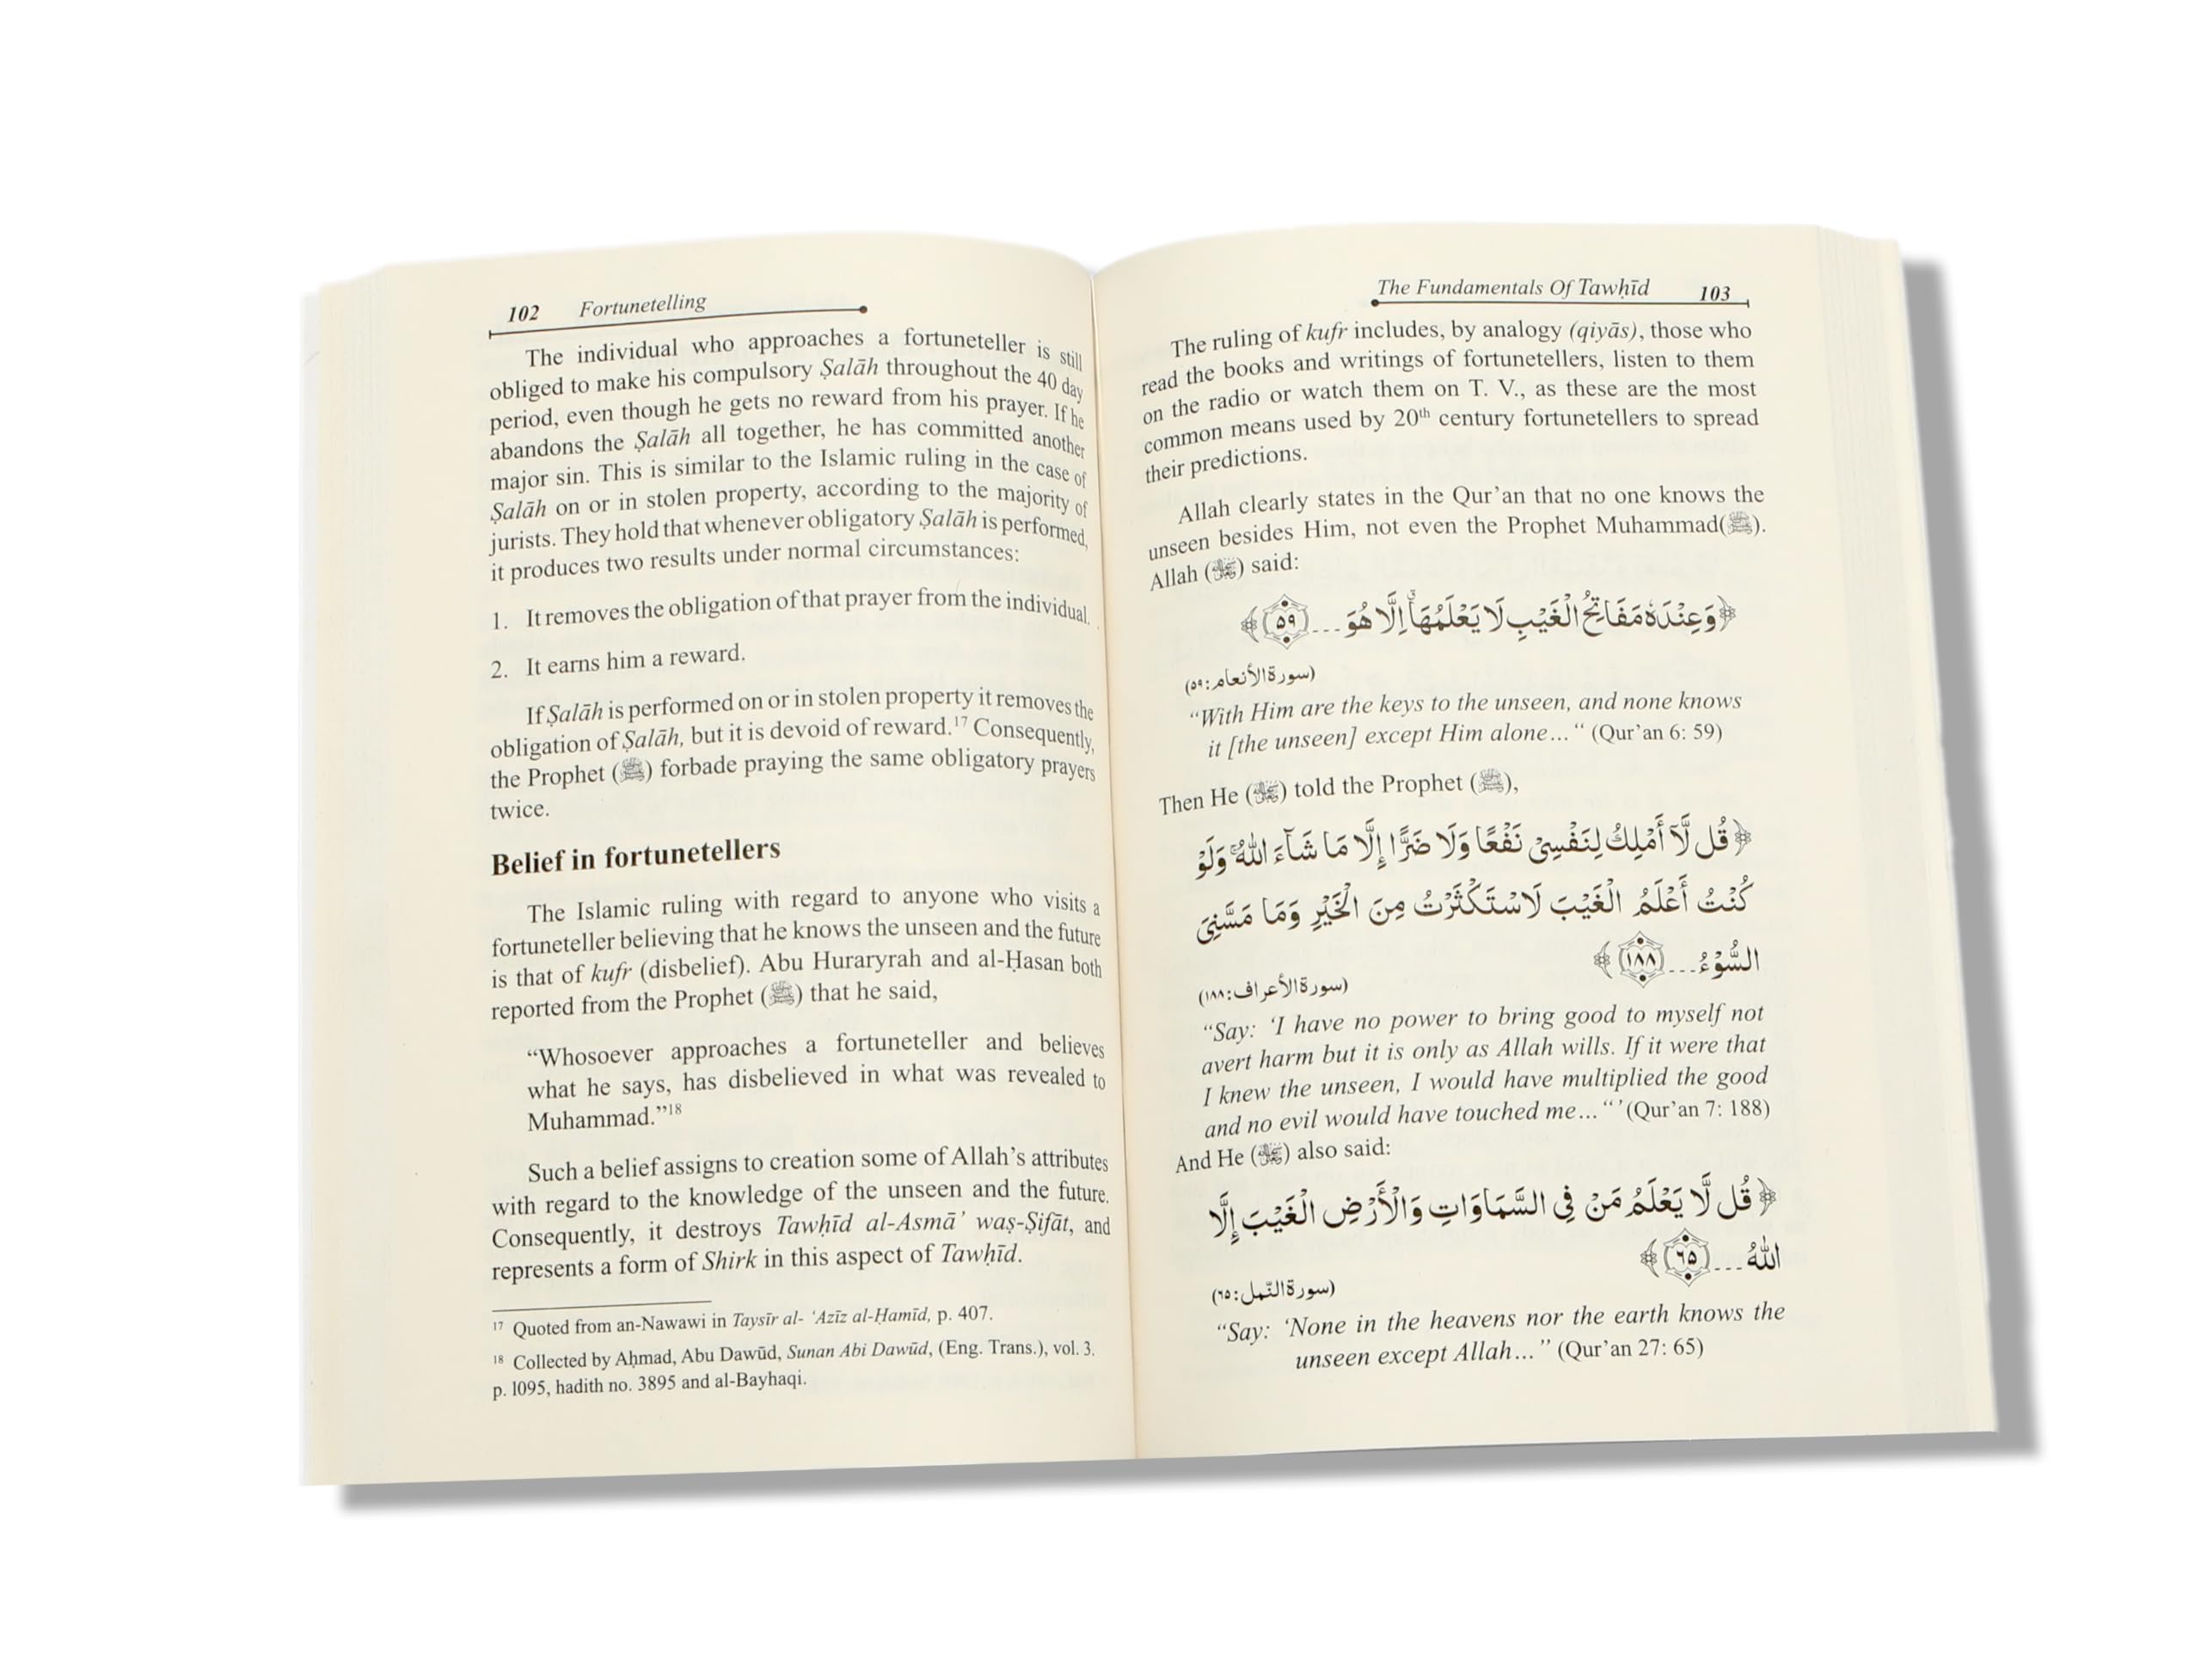 102 Fortunetelling
The individual who approaches a fortuneteller is still
obliged to make his compulsory Ṣalāh throughout the 40 day
period, even though he gets no reward from his prayer. If he
abandons the Ṣalāh all together, he has committed another
major sin. This is similar to the Islamic ruling in the case of
Ṣalāh on or in stolen property, according to the majority of
jurists. They hold that whenever obligatory Ṣalāh is performed,
it produces two results under normal circumstances:
1. It removes the obligation of that prayer from the individual.
2. It earns him a reward.
If Ṣalāh is performed on or in stolen property it removes the
obligation of Ṣalāh, but it is devoid of reward.17 Consequently,
the Prophet (ﷺ) forbade praying the same obligatory prayers
twice.
Belief in fortunetellers
The Islamic ruling with regard to anyone who visits a
fortuneteller believing that he knows the unseen and the future
is that of kufr (disbelief). Abu Huraryrah and al-Ḥasan both
reported from the Prophet (ﷺ) that he said,
“Whosoever approaches a fortuneteller and believes
what he says, has disbelieved in what was revealed to
Muhammad.”18
Such a belief assigns to creation some of Allah’s attributes
with regard to the knowledge of the unseen and the future.
Consequently, it destroys Tawḥīd al-Asmā’ waṣ-Ṣifāt, and
represents a form of Shirk in this aspect of Tawḥīd.
17 Quoted from an-Nawawi in Taysīr al- ‘Azīz al-Ḥamīd, p. 407.
18 Collected by Aḥmad, Abu Dawūd, Sunan Abi Dawūd, (Eng. Trans.), vol. 3.
p. l095, hadith no. 3895 and al-Bayhaqi.
The Fundamentals Of Tawḥīd 103
The ruling of kufr includes, by analogy (qiyās), those who
read the books and writings of fortunetellers, listen to them
on the radio or watch them on T. V., as these are the most
common means used by 20th century fortunetellers to spread
their predictions.
Allah clearly states in the Qur’an that no one knows the
unseen besides Him, not even the Prophet Muhammad(ﷺ).
Allah (ﷻ) said:
﴿وَعِنْدَهٗ مَفَاتِحُ الْغَيْبِ لَا يَعْلَمُهَاۤ اِلَّا هُوَ ...﴿٥٩﴾﴾
(سورة الأنعام: ٥٩)
“With Him are the keys to the unseen, and none knows
it [the unseen] except Him alone…“ (Qur’an 6: 59)
Then He (ﷻ) told the Prophet (ﷺ),
﴿قُل لَّآ أَمْلِكُ لِنَفْسِىْ نَفْعًا وَلَا ضَرًّا إِلَّا مَا شَآءَ اللّٰهُ ۚ وَلَوْ
كُنْتُ أَعْلَمُ الْغَيْبَ لَاسْتَكْثَرْتُ مِنَ الْخَيْرِ وَمَا مَسَّنِىَ
السُّوْءُ ...﴿١٨٨﴾﴾
(سورة الأعراف: ١٨٨)
“Say: ‘I have no power to bring good to myself not
avert harm but it is only as Allah wills. If it were that
I knew the unseen, I would have multiplied the good
and no evil would have touched me…“’(Qur’an 7: 188)
And He (ﷻ) also said:
﴿قُل لَّا يَعْلَمُ مَنْ فِى السَّمَاوَاتِ وَالْأَرْضِ الْغَيْبَ إِلَّا
اللّٰهُ ...﴿٦٥﴾﴾
(سورة النّمل: ٦٥)
“Say: ‘None in the heavens nor the earth knows the
unseen except Allah…” (Qur’an 27: 65)